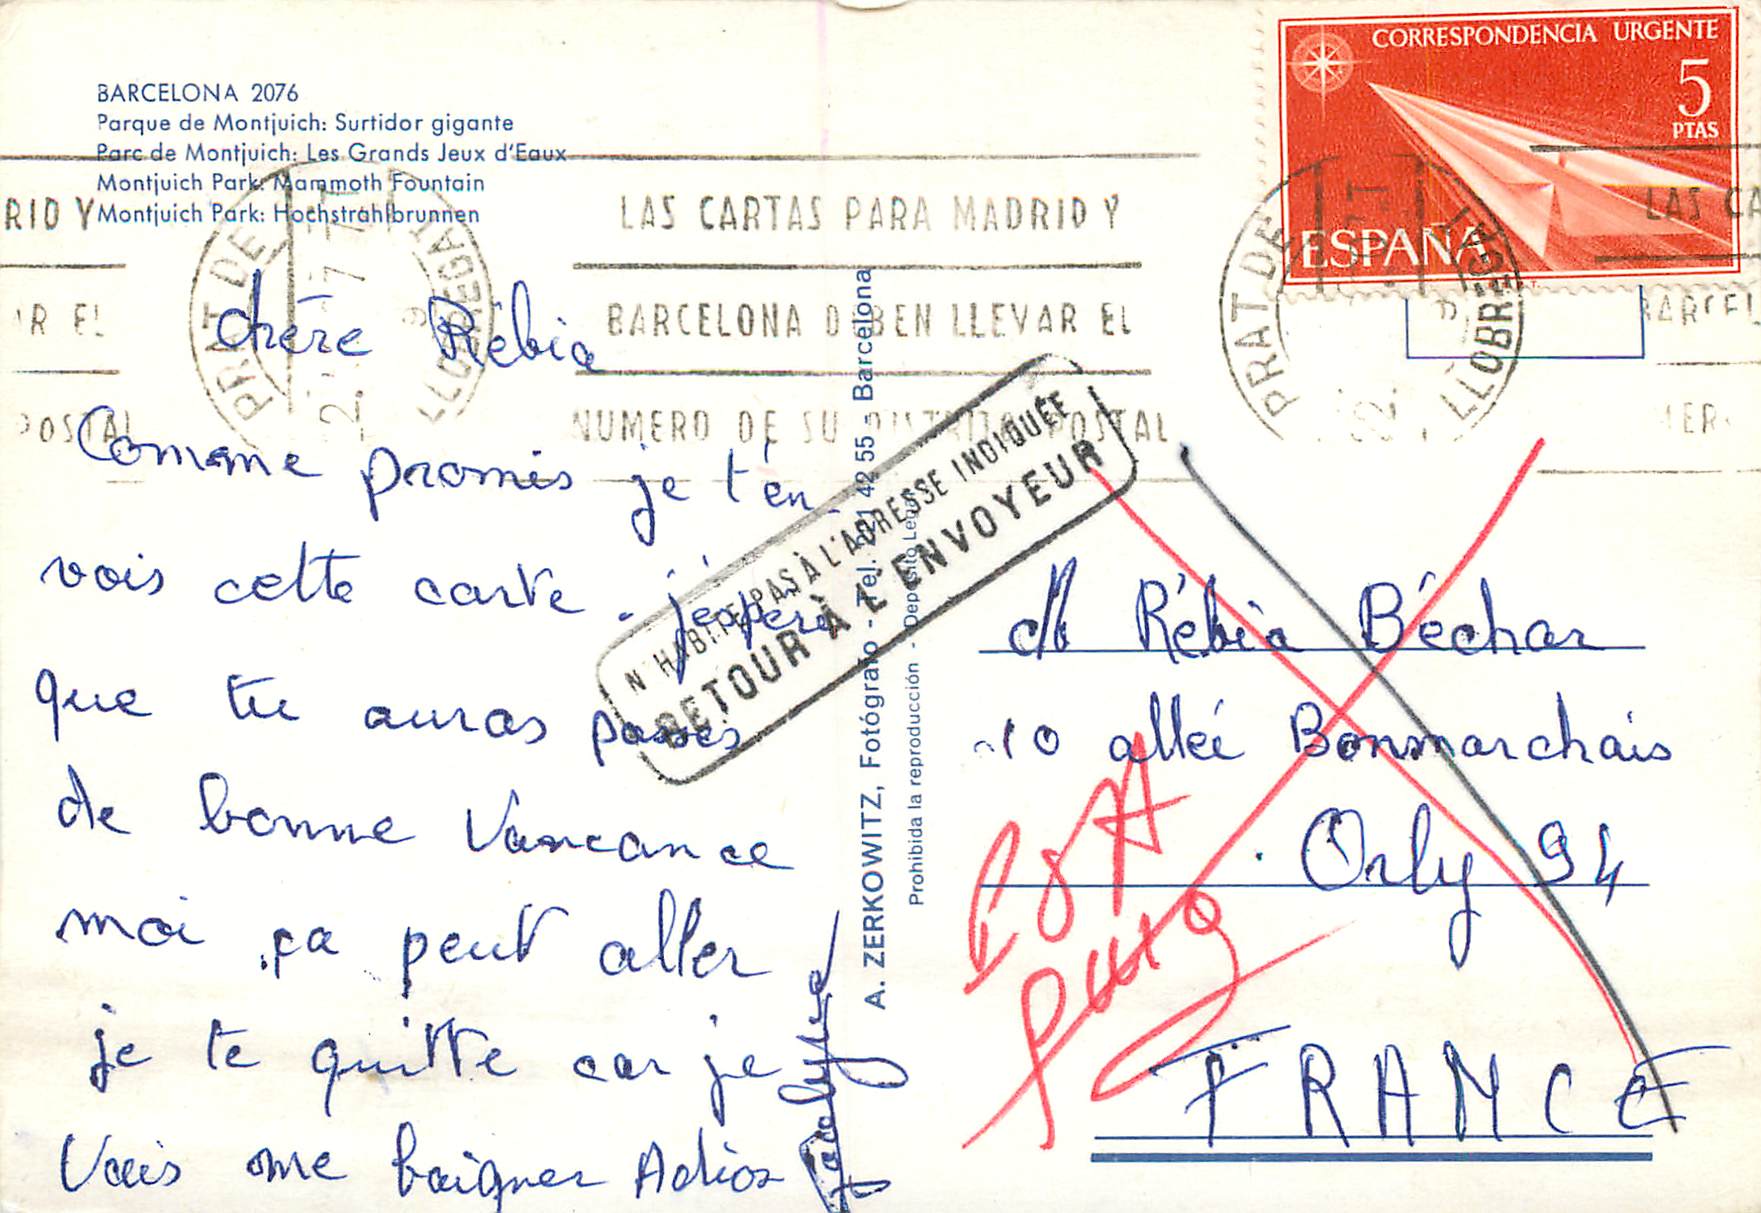 BARCELONA 2076
Parque de Montjuich: Surtidor gigante
Parc de Montjuich: Les Grands Jeux d'Eaux
Montjuich Park: Mammoth Fountain
Montjuich Park: Hochstrahlbrunnen
chère Rébia
Comme promis je t'en-
vois cette carte. j'éspère
que tu auras passés
de bonne Vancance
moi ça peut aller
je te quitte car je
Vais me baigner Adios
A. ZERKOWITZ, Fotógrafo - Tel. 221 42 55 - Barcelona
Prohibida la reproducción - Depósito Legal
CORRESPONDENCIA URGENTE
5
PTAS
ESPAÑA
PRAT DE LLOBREGAT
RID Y
AR EL
POSTAL
LAS CARTAS PARA MADRID Y
BARCELONA DEBEN LLEVAR EL
NUMERO DE SU DISTRITO POSTAL
PRAT DE LLOBREGAT
LAS CA
BARCEL
N'HABITE PAS À L'ADRESSE INDIQUÉE
RETOUR À L'ENVOYEUR
M Rébia Béchar
10 allée Bonmarchais
Orly 94
FRANCE